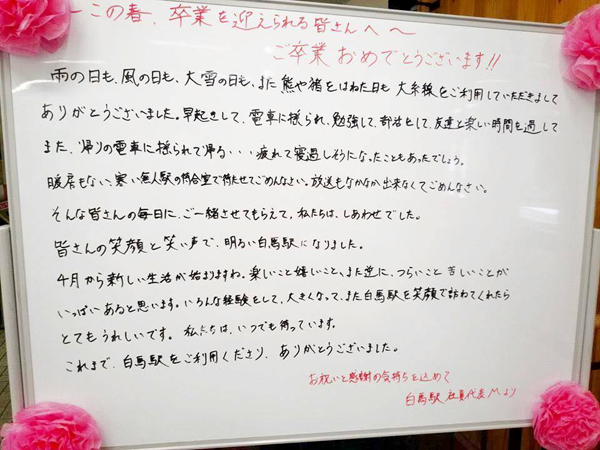 ~この春、卒業を迎えられる皆さんへ~
ご卒業おめでとうございます!!
雨の日も、風の日も、大雪の日も、また熊や猪をはねた日も大糸線をご利用していただきまして
ありがとうございました。早起きして、電車に揺られ、勉強して、部活をして、友達と楽しい時間を過して
また、帰りの電車に揺られて帰る・・・疲れて寝過しそうになったこともあったでしょう。
暖房もない、寒い無人駅の待合室で待たせてごめんなさい。放送もなかなか出来なくてごめんなさい。
そんな皆さんの毎日に、ご一緒させてもらえて、私たちは、しあわせでした。
皆さんの笑顔と笑い声で、明るい白馬駅になりました。
4月から新しい生活が始まりますね。楽しいこと嬉しいこと、また逆に、つらいこと苦しいことが
いっぱいあると思います。いろんな経験をして、大きくなって、また白馬駅を笑顔で訪れてくれたら
とてもうれしいです。私たちは、いつでも待っています。
これまで、白馬駅をご利用くださり、ありがとうございました。
お祝いと感謝の気持ちを込めて
白馬駅 社員代表Mより